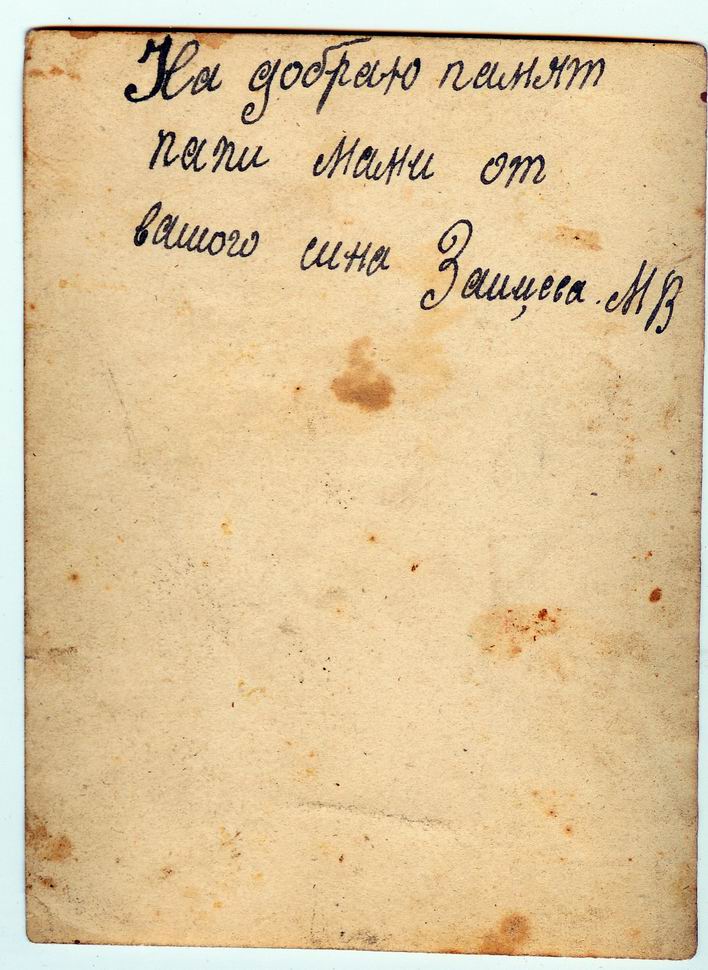 На добраю памят
папи мами от
вашого сина Заицева. М В